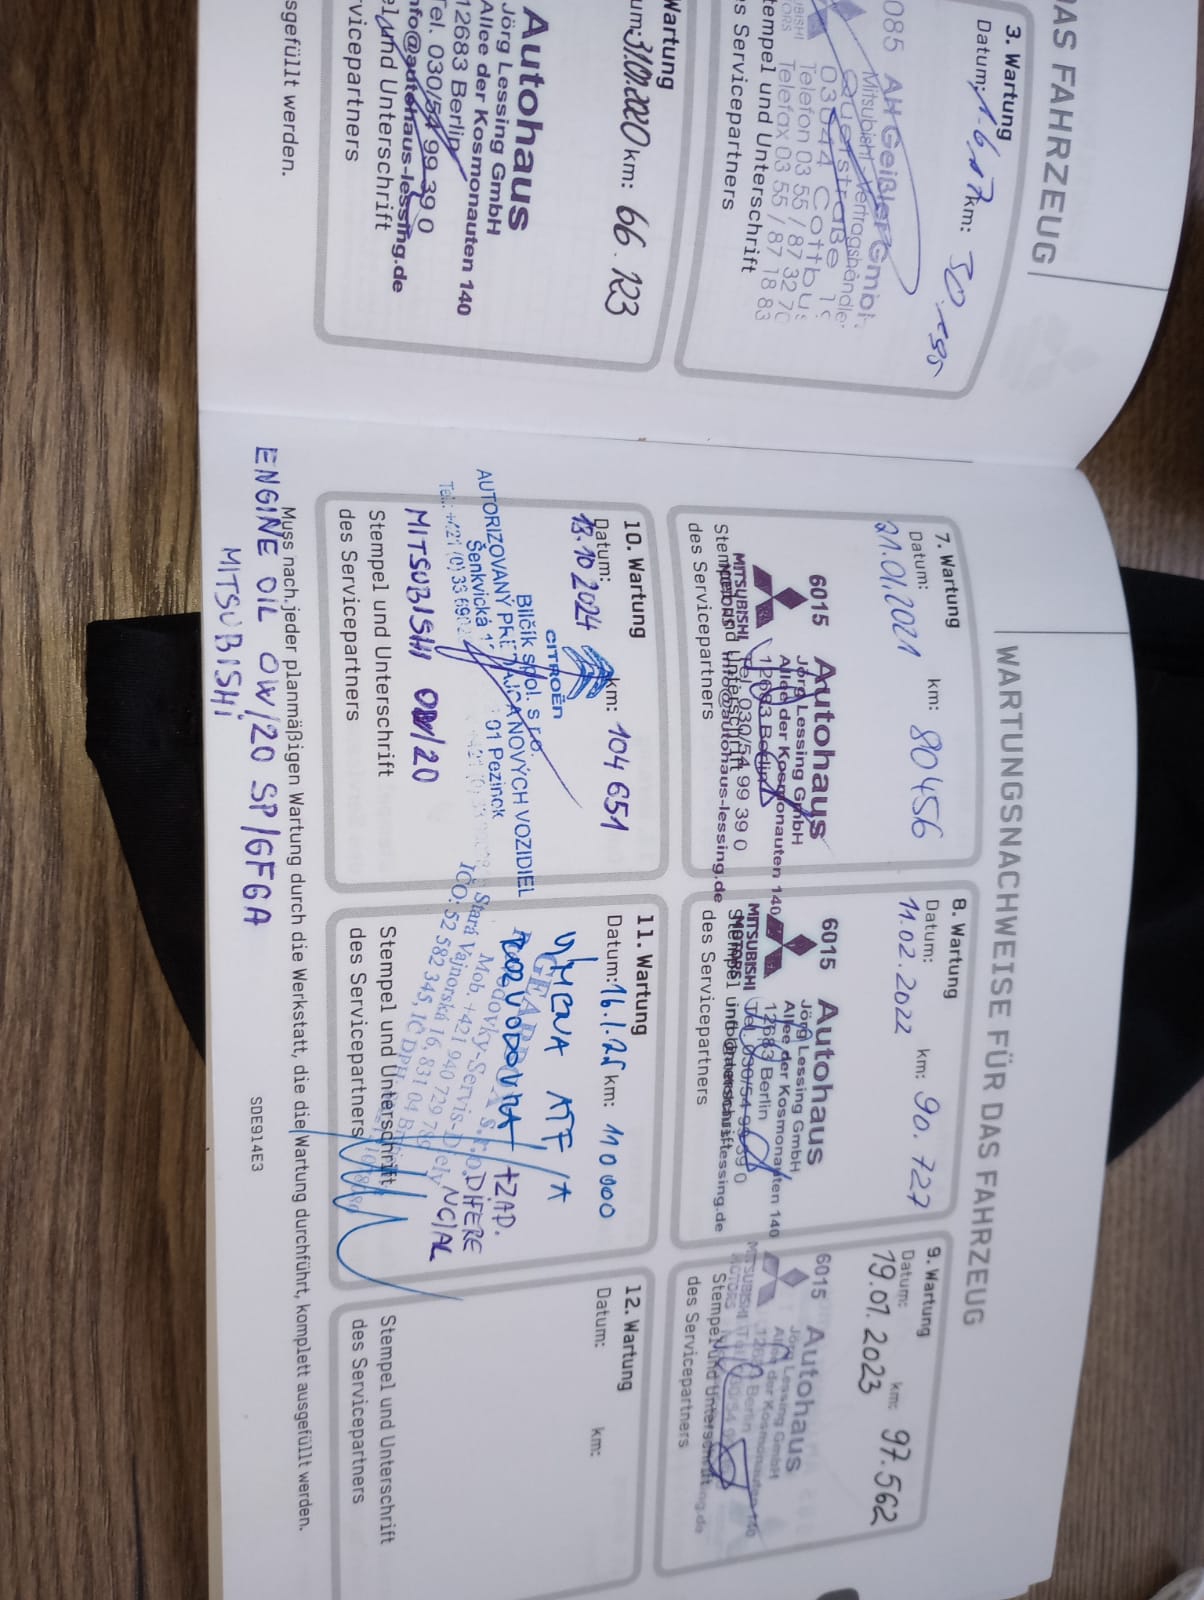 DAS FAHRZEUG
3. Wartung
Datum: 1.6.17 km: 30.
085 AH Geißler GmbH
Mitsubishi Vertragshändler
Querstraße
03044 Cottbus
Telefon 03 55 / 87 32 70
Telefax 03 55 / 87 18 83
Stempel und Unterschrift
des Servicepartners
Wartung
31.01.2020 km: 66.123
Autohaus
Jörg Lessing GmbH
Allee der Kosmonauten 140
12683 Berlin
Tel. 030/54 99 39 0
info@autohaus-lessing.de
und Unterschrift
vicepartners
sgefüllt werden.
WARTUNGSNACHWEISE FÜR DAS FAHRZEUG
7. Wartung
Datum: km:
21.01.2021 80456
6015 Autohaus
Jörg Lessing GmbH
Allee der Kosmonauten 140
12683 Berlin
MITSUBISHI Tel. 030/54 99 39 0
MOTORS info@autohaus-lessing.de
Stempel und Unterschrift
des Servicepartners
8. Wartung
Datum: km:
11.02.2022 90.727
6015 Autohaus
Jörg Lessing GmbH
Allee der Kosmonauten 140
12683 Berlin
MITSUBISHI Tel. 030/54 99 39 0
MOTORS
Stempel und Unterschrift
des Servicepartners
9. Wartung
Datum: km:
19.01.2023 97.562
6015 Autohaus
Jörg Lessing GmbH
Allee der Kosmonauten 140
12683 Berlin
MITSUBISHI
MOTORS
Stempel und Unterschrift
des Servicepartners
10. Wartung
Datum: km:
18.10.2024 104 651
CITROËN
Bilčík spol. s r.o.
AUTORIZOVANÝ PREDAJCA NOVÝCH VOZIDIEL
Šenkvická 1 01 Pezinok
Tel.: +421 (0) 33 690
MITSUBISHI 0W/20
Stempel und Unterschrift
des Servicepartners
11. Wartung
Datum: 16.1.25 km: 110 000
VÝMENA ATF /A
ROZVODOVKA + ZAD.
DIFERE
NCIÁL
s.r.o.
Stará Vajnorská 16, 831 04
Mob. +421 940 729 78
IČO: 52 582 345, IČ DPH:
Stempel und Unterschrift
des Servicepartners
12. Wartung
Datum: km:
Stempel und Unterschrift
des Servicepartners
Muss nach jeder planmäßigen Wartung durch die Werkstatt, die die Wartung durchführt, komplett ausgefüllt werden.
ENGINE OIL 0W/20 SP/GF6A
MITSUBISHI
SDE914E3